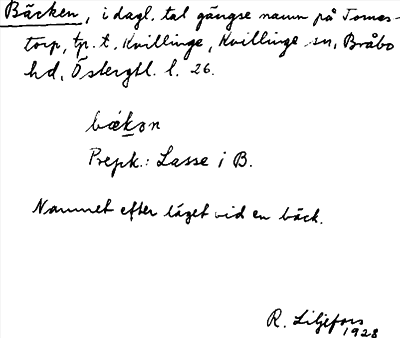 Bäcken, i dagl. tal gängse namn på Tomas-
torp, tp. t. Kvillinge, Kvillinge sn, Bråbo
hd, Östergtl. l. 26.
bækən
Prepk.: Lasse i B.
Namnet efter läget vid en bäck.
R. Liljefors
1928